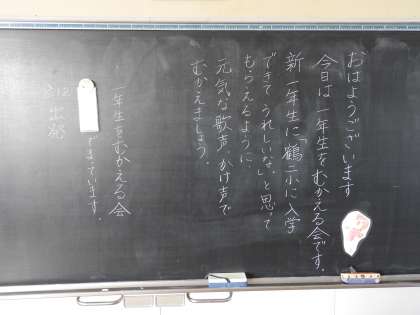 おはようございます
今日は一年生をむかえる会です。
新一年生に「鶴二小に入学
できてうれしいな」と思って
もらえるように、
元気な歌声、かけ声で
むかえましょう。
・一年生をむかえる会
でまっています。